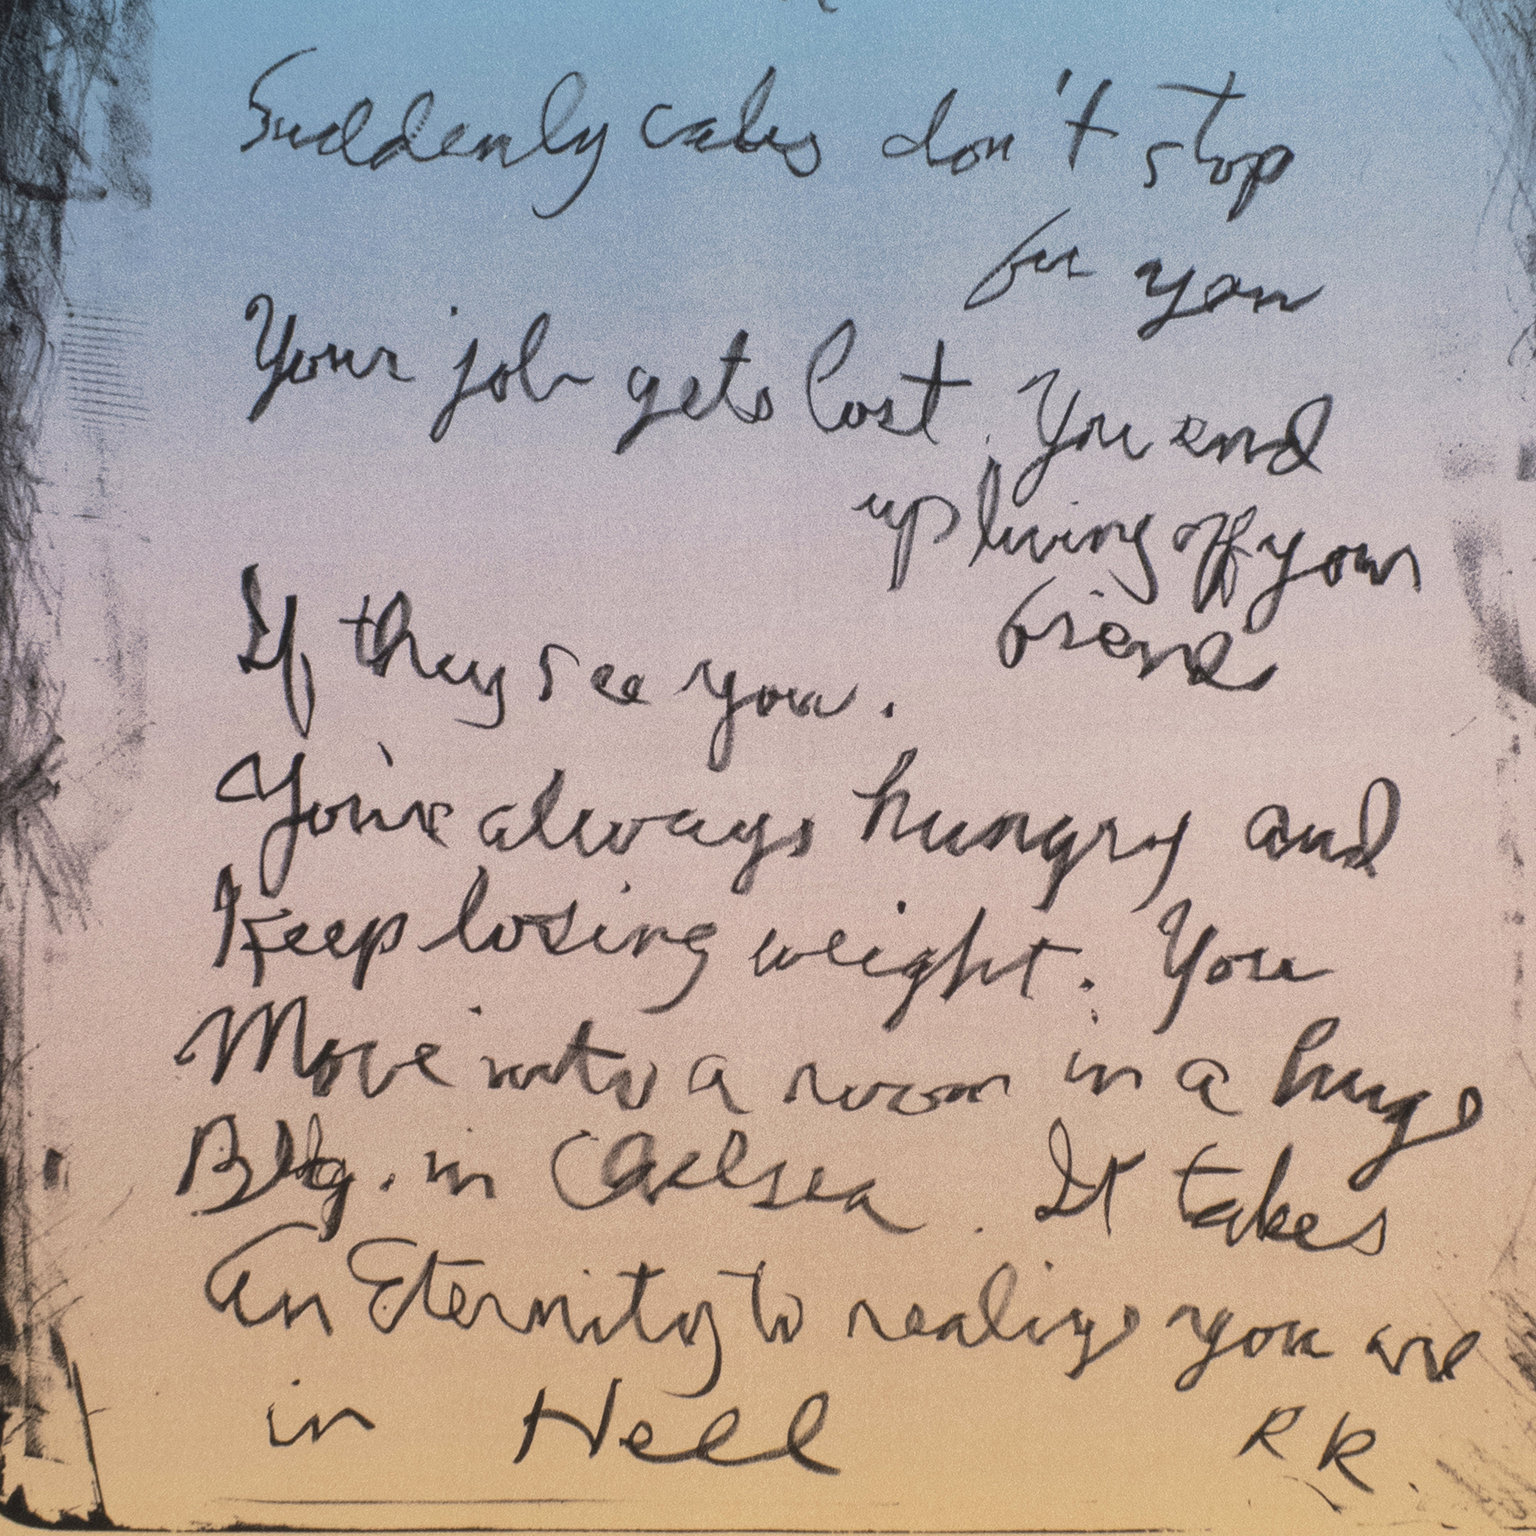 Suddenly cabs don't stop
for you
Your job gets lost. You end
up living off your
friends
If they see you.
You're always hungry and
Keep losing weight. You
Move into a room in a huge
Bldg. in Chelsea. It takes
An Eternity to realize you are
in Hell
RR.